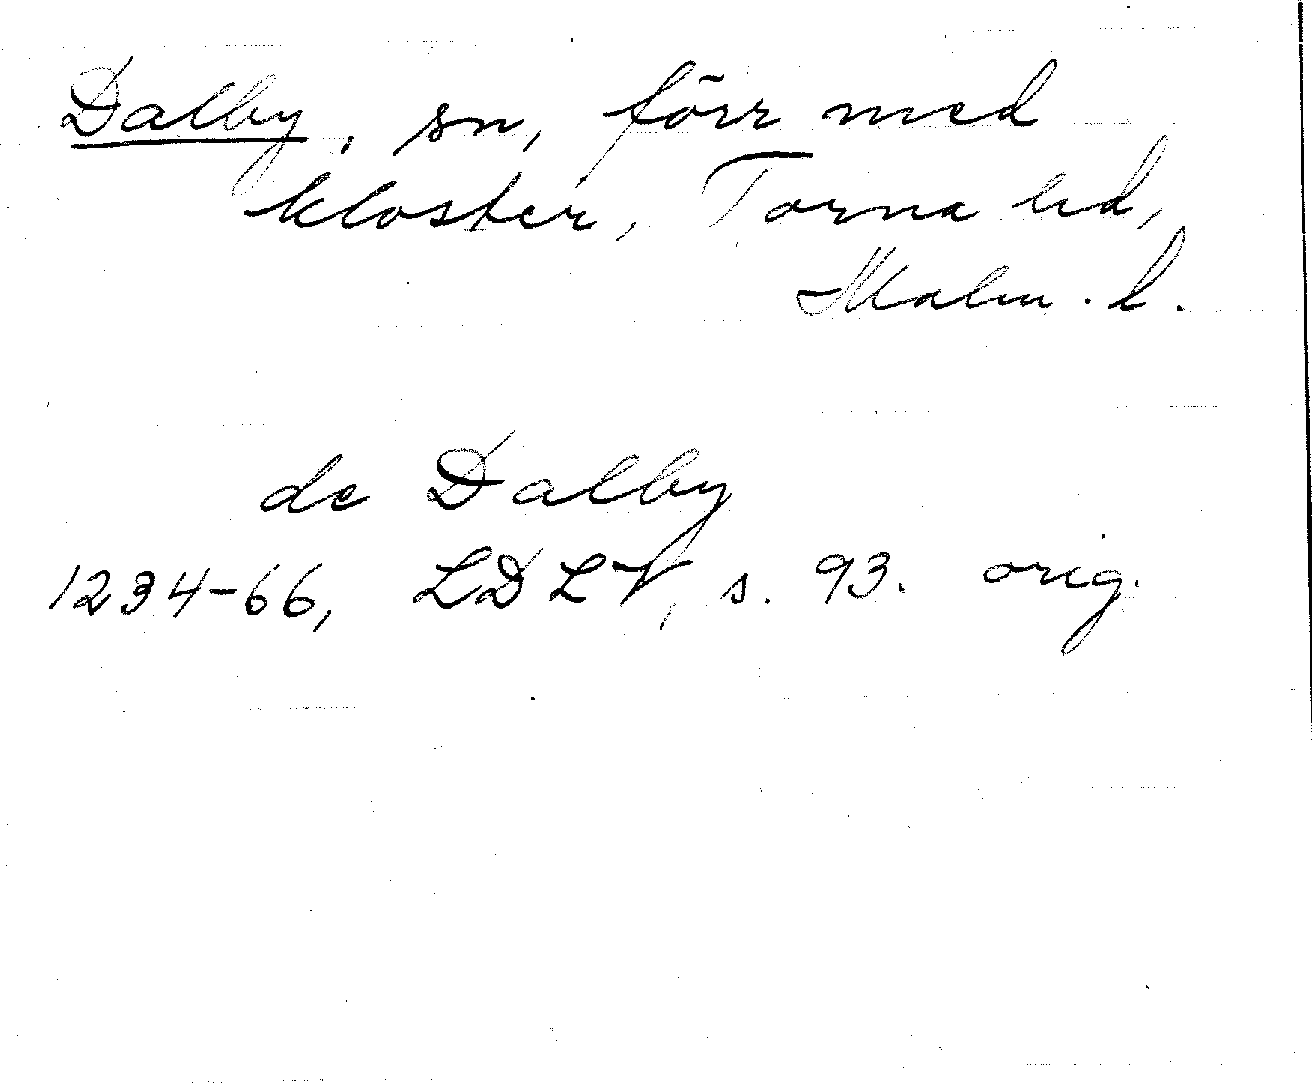 Dalby, sn, förr med
kloster, Torna hd,
Malm. l.
de Dalby
1234-66, LDLV, s. 93. orig.